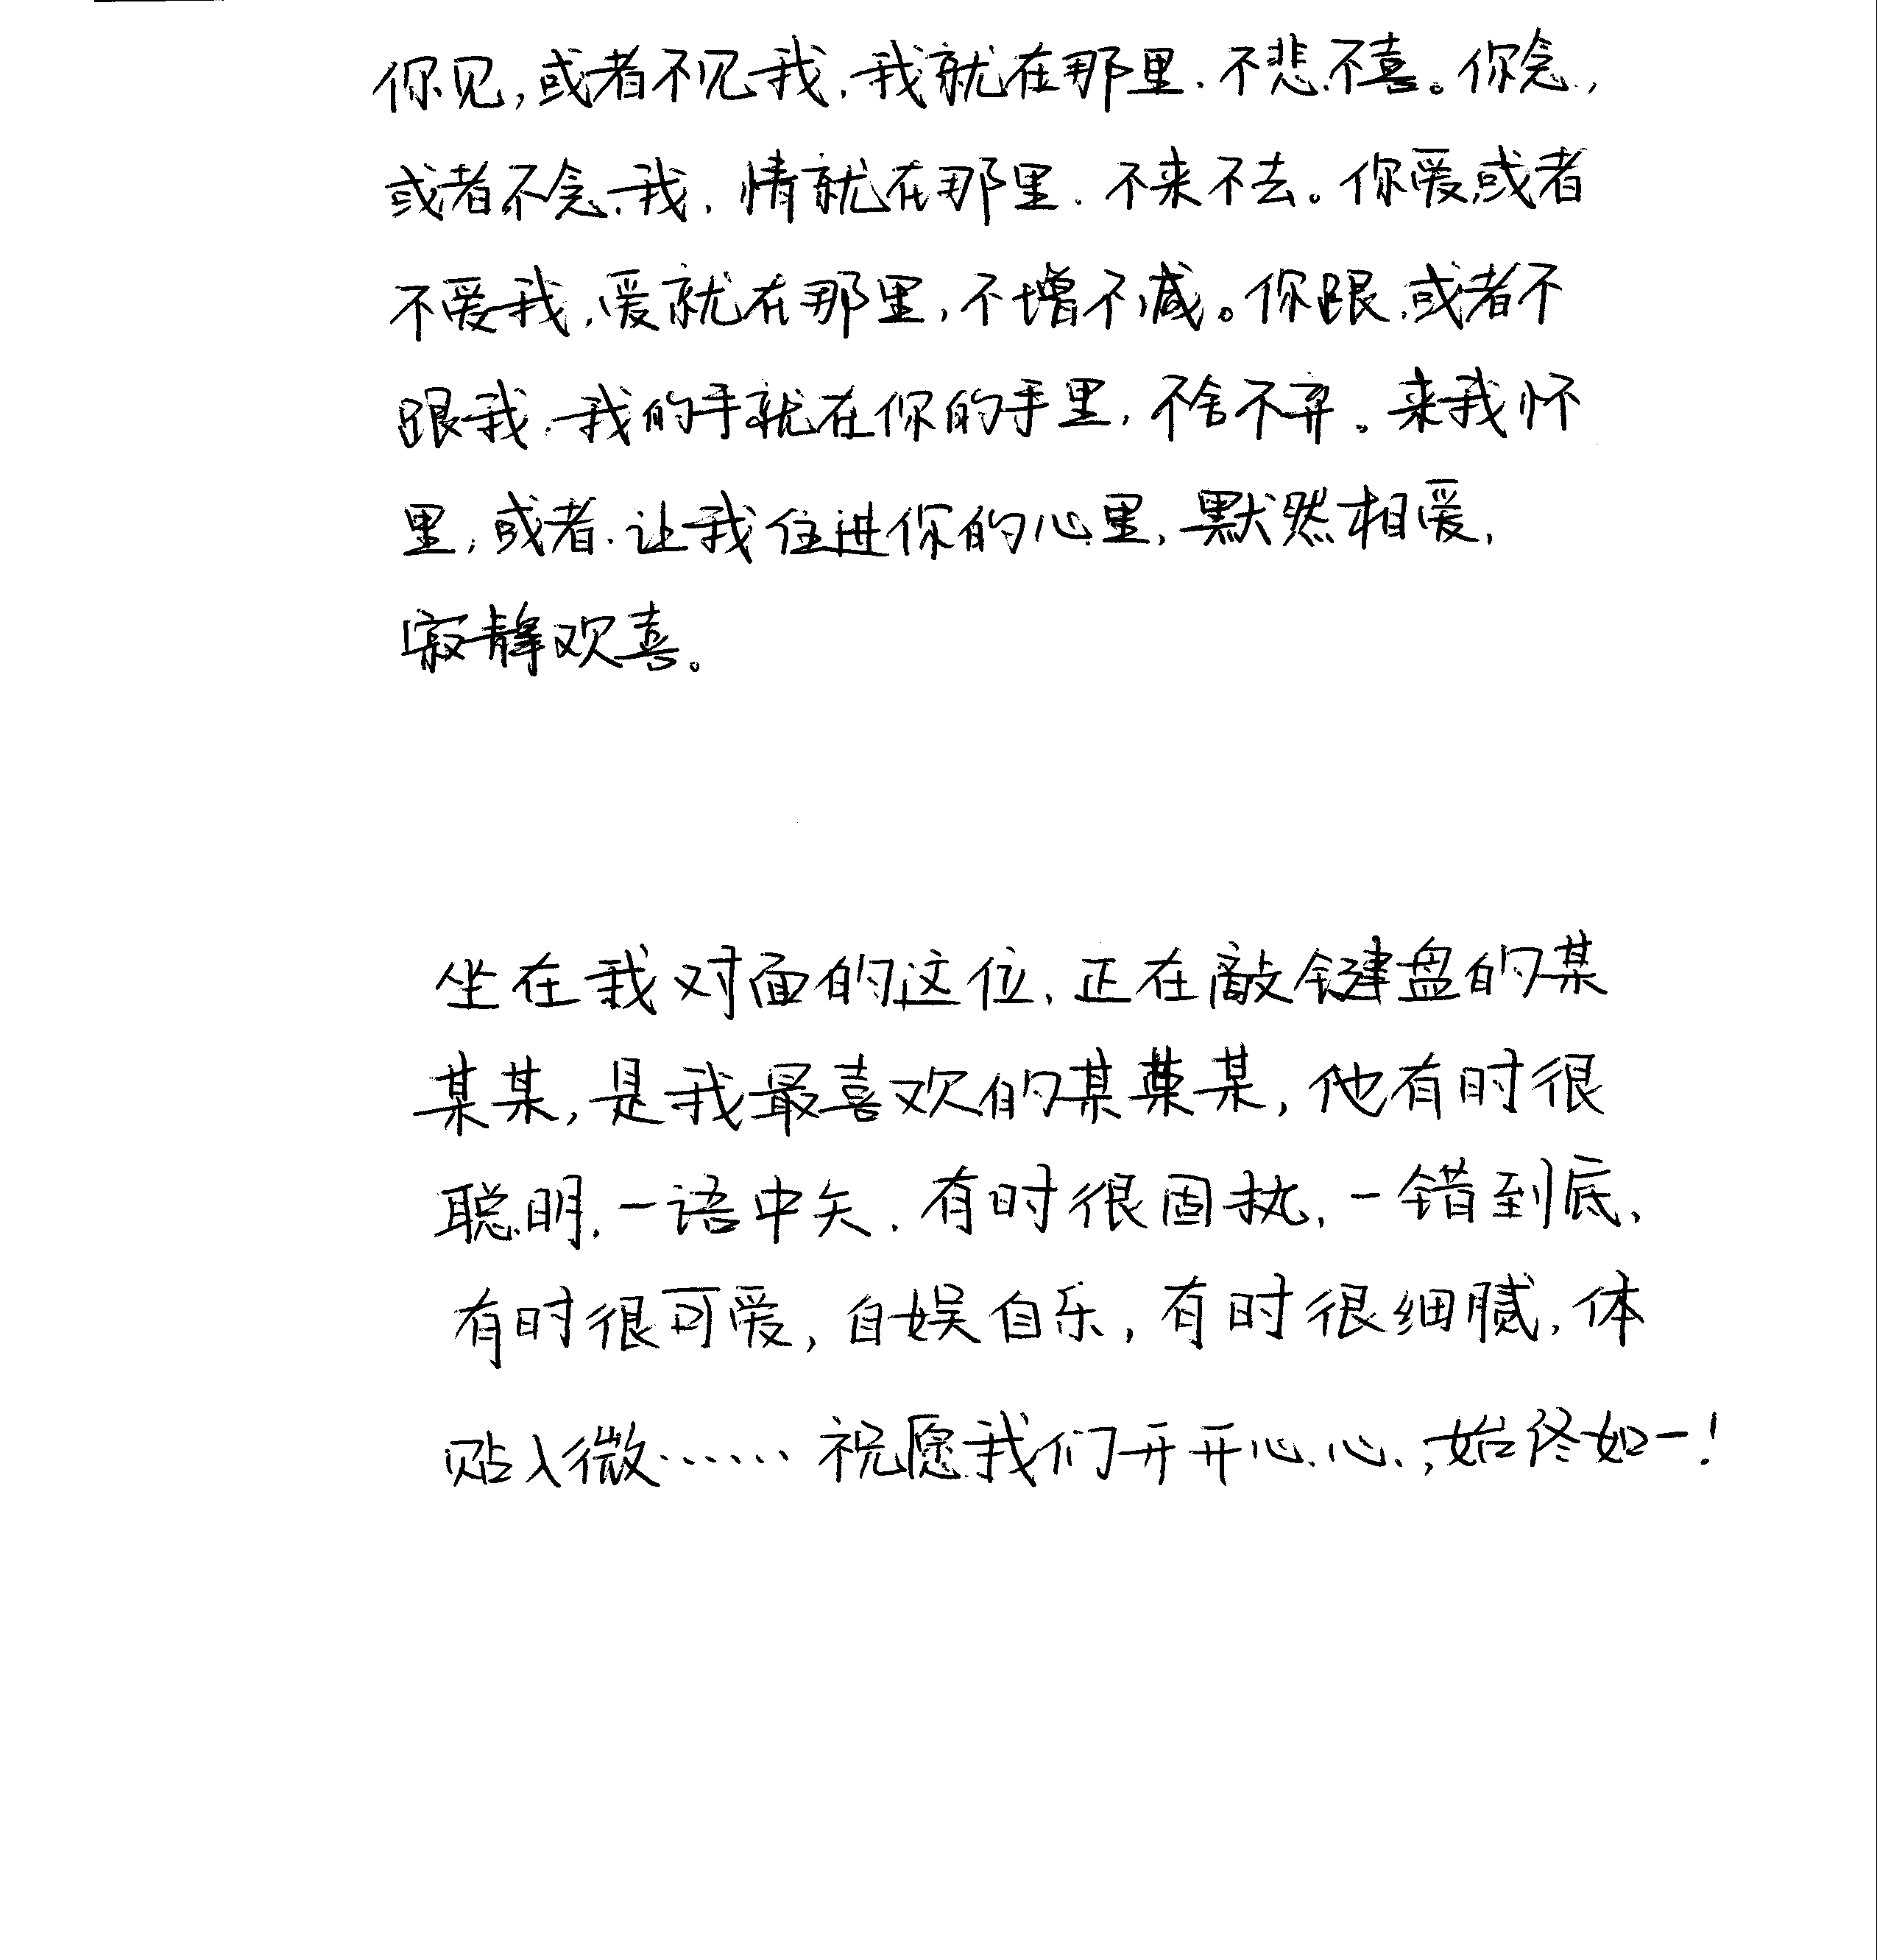 你见,或者不见我,我就在那里,不悲不喜。你念,
或者不念我,情就在那里,不来不去。你爱,或者
不爱我,爱就在那里,不增不减。你跟,或者不
跟我,我的手就在你的手里,不舍不弃。来我怀
里,或者,让我住进你的心里,默然相爱,
寂静欢喜。
坐在我对面的这位,正在敲键盘的某
某某,是我最喜欢的某某某,他有时很
聪明,一语中矢,有时很固执,一错到底,
有时很可爱,自娱自乐,有时很细腻,体
贴入微……祝愿我们开开心心,始终如一!